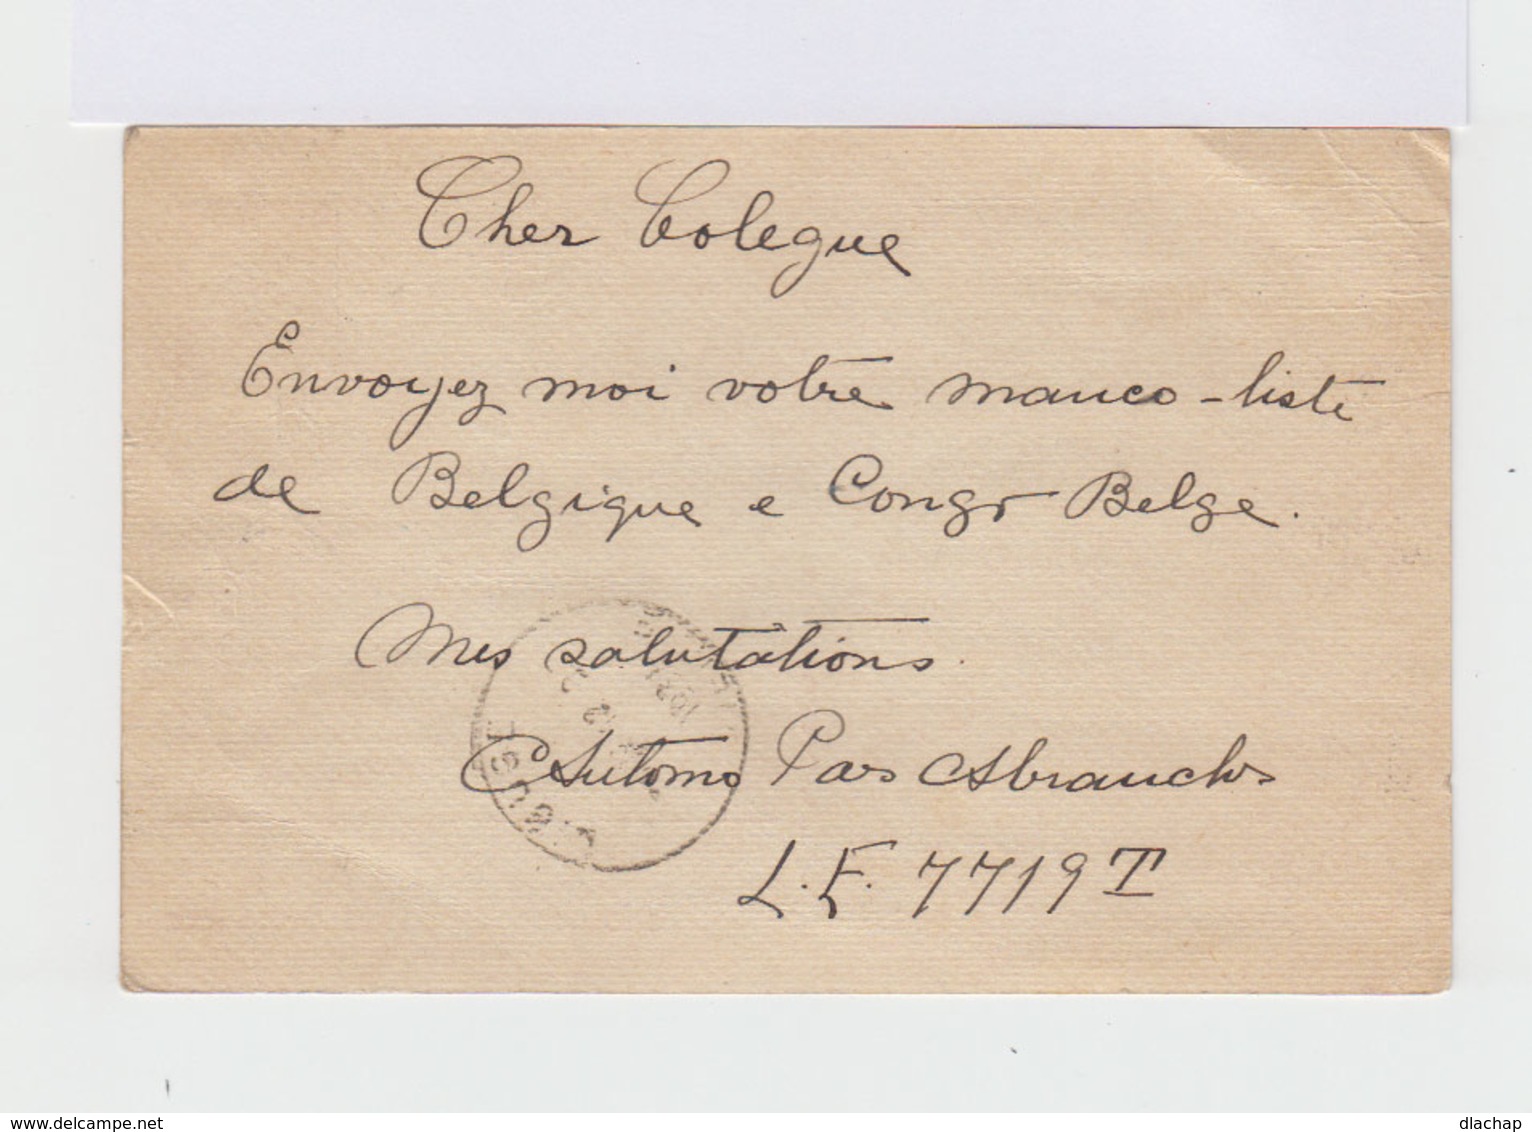 Cher Colegue
Envoyez moi votre manco-liste
de Belgique e Congo Belge.
Mes salutations.
Antonio Pais Abranches
L.F. 7719 T
www.delcampe.net
dlachap